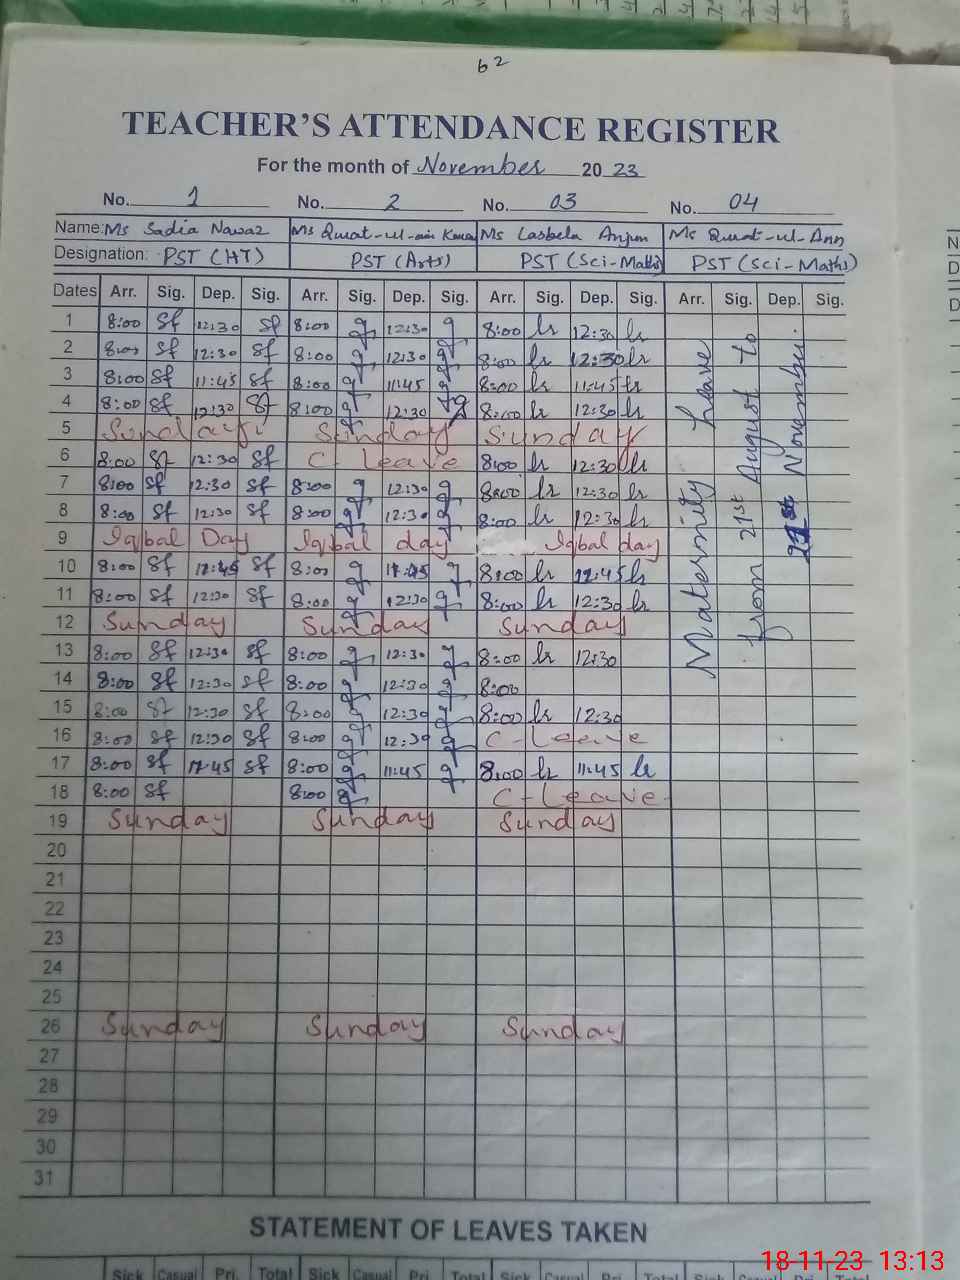 62
TEACHER'S ATTENDANCE REGISTER
For the month of November 20 23
No. 1 No. 2 No. 03 No. 04
Name: Ms Sadia Nawaz Ms Qurat-ul-ain Ms Lasbela Anjum Ms Qurat-ul-Ann
Designation: PST (HT) PST (Arts) PST (Sci-Maths) PST (Sci-Maths)
Dates Arr. Sig. Dep. Sig. Arr. Sig. Dep. Sig. Arr. Sig. Dep. Sig. Arr. Sig. Dep. Sig.
1 8:00 Sf 12:30 Sf 8:00 q 12:30 q 8:00 lr 12:30 lr
2 8:00 Sf 12:30 Sf 8:00 q 12:30 q 8:00 lr 12:30 lr
3 8:00 Sf 11:45 Sf 8:00 q 11:45 q 8:00 lr 11:45 lr
4 8:00 Sf 12:30 Sf 8:00 q 12:30 q 8:00 lr 12:30 lr
5 Sunday Sunday Sunday
6 8:00 Sf 12:30 Sf C-Leave 8:00 lr 12:30 lr
7 8:00 Sf 12:30 Sf 8:00 q 12:30 q 8:00 lr 12:30 lr
8 8:00 Sf 12:30 Sf 8:00 q 12:30 q 8:00 lr 12:30 lr
9 Iqbal Day Iqbal day Iqbal day
10 8:00 Sf 11:45 Sf 8:00 q 11:45 q 8:00 lr 11:45 lr
11 8:00 Sf 12:30 Sf 8:00 q 12:30 q 8:00 lr 12:30 lr
12 Sunday Sunday Sunday
13 8:00 Sf 12:30 Sf 8:00 q 12:30 q 8:00 lr 12:30
14 8:00 Sf 12:30 Sf 8:00 q 12:30 q 8:00
15 8:00 Sf 12:30 Sf 8:00 q 12:30 q 8:00 lr 12:30
16 8:00 Sf 12:30 Sf 8:00 q 12:30 q C-Leave
17 8:00 Sf 11:45 Sf 8:00 q 11:45 q 8:00 lr 11:45 lr
18 8:00 Sf 8:00 q C-Leave
19 Sunday Sunday Sunday
20
21
22
23
24
25
26 Sunday Sunday Sunday
27
28
29
30
31
Maternity Leave
from 21st August to
21st November.
STATEMENT OF LEAVES TAKEN
Sick Casual Pri. Total Sick Casual Pri. Total Sick Casual Pri. Total Sick Casual Pri. Total
18-11-23 13:13